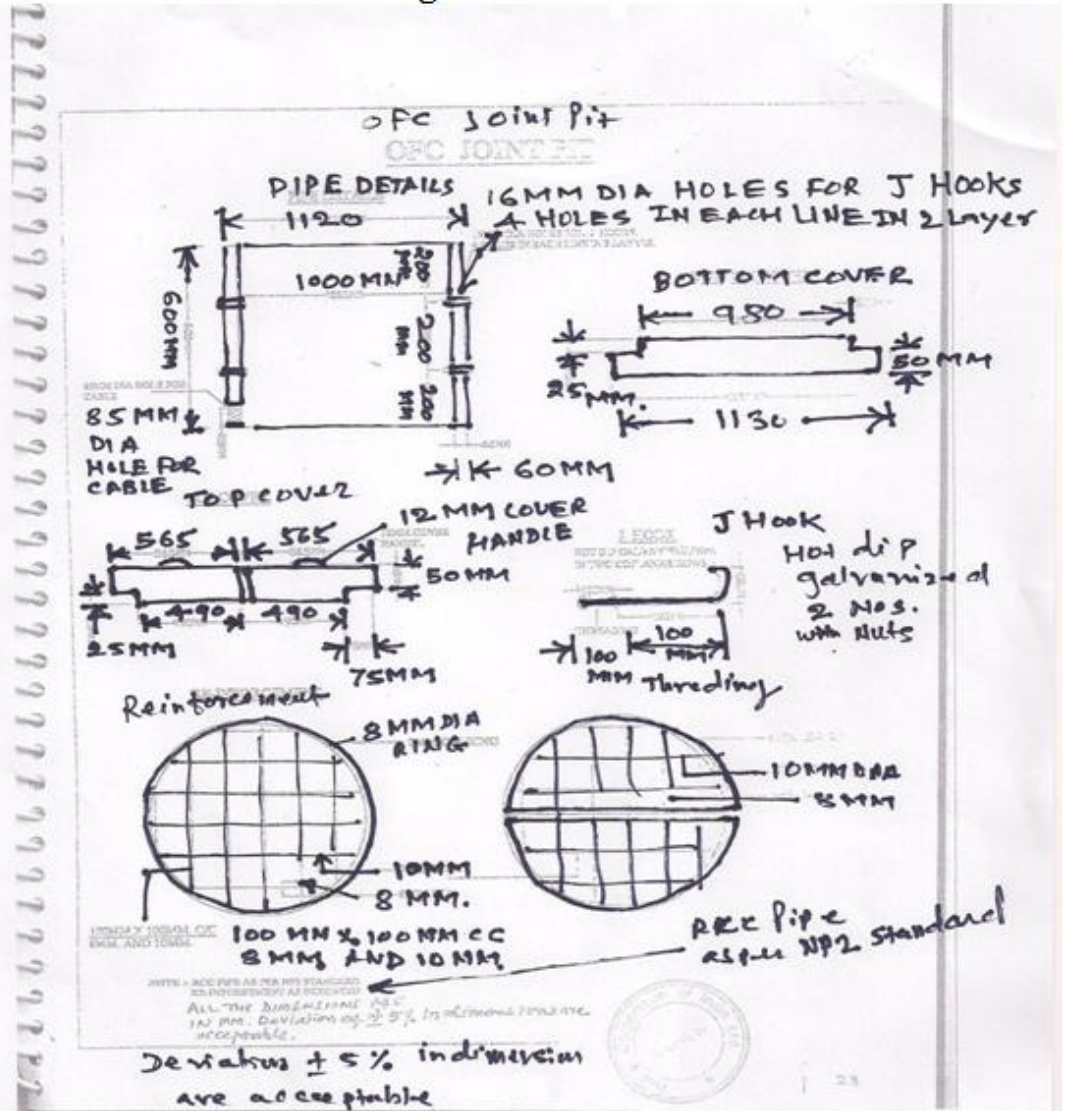 OFC Joint Pit
OFC JOINT PIT
PIPE DETAILS
1120
16MM DIA HOLES FOR J HOOKS
4 HOLES IN EACH LINE IN 2 Layer
1000 MM
200 MM
200 MM
200 MM
600MM
85 MM
DIA
HOLE FOR
CABLE
60MM
BOTTOM COVER
980
25MM.
50 MM
1130
TOP COVER
565
565
12 MM COVER
HANDLE
50MM
490
490
25MM
75MM
J HOOK
J Hook
Hot dip
galvanized
2 Nos.
with Nuts
100
MM
100
MM
Threding
Reinforcement
8 MM DIA
RING
10MM
8 MM.
100 MM X 100MM CC
8MM AND 10MM
10MM DIA
8MM
RCC Pipe
as per NP2 Standard
ALL THE DIMENSIONS ARE
IN MM. Deviation of ± 5% in dimensions are
acceptable.
Deviation ± 5% in dimersion
are acceptable
23